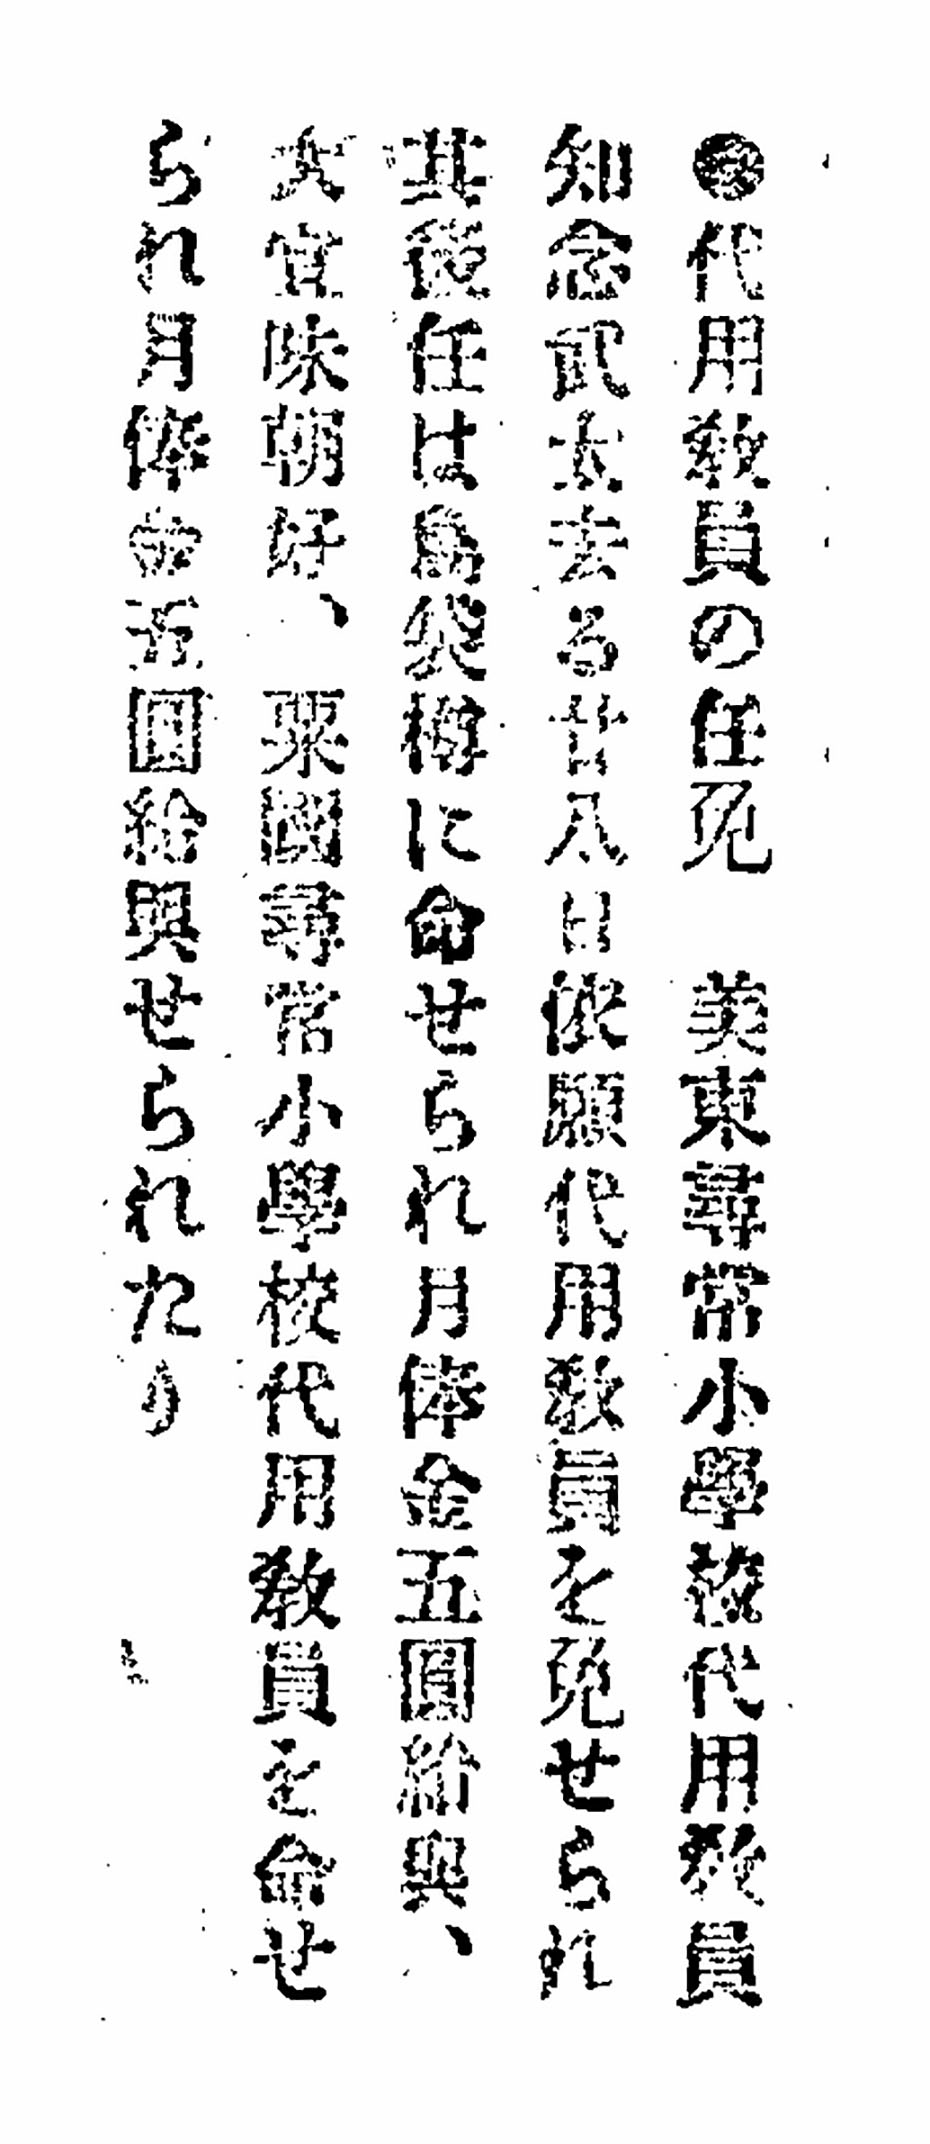 ●代用敎員の任免　美東尋常小學校代用敎員
知念武太去る廿八日依願代用敎員を免せられ
其後任は島袋樽に命せられ月俸金五圓給與、
大宜味朝好、　粟國尋常小學校代用敎員を命せ
られ月俸金五圓給與せられたり